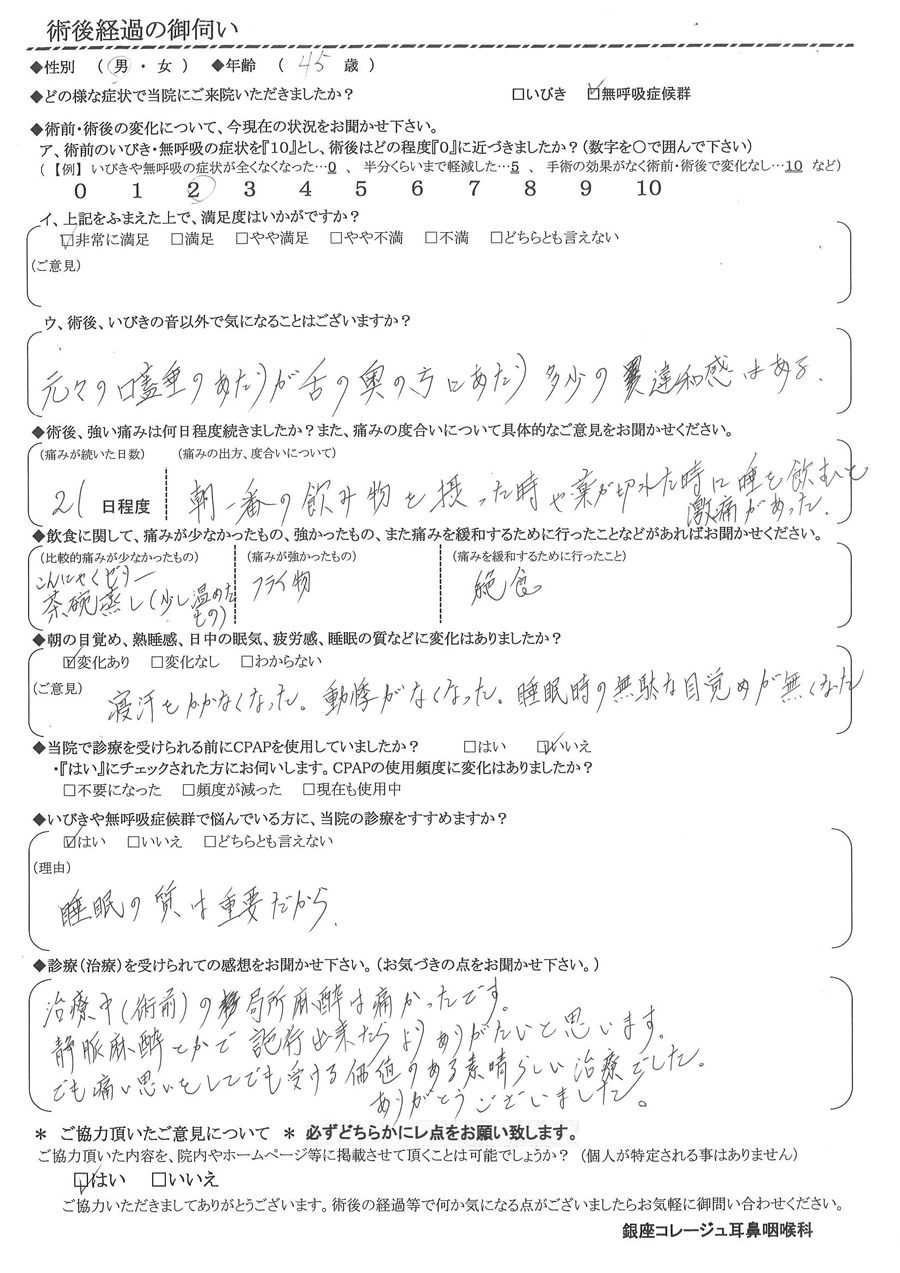 術後経過の御伺い
◆性別 （ 男 ・ 女 ） ◆年齢 （ 45 歳 ）
◆どの様な症状で当院にご来院いただきましたか？ □いびき ☑無呼吸症候群
◆術前・術後の変化について、今現在の状況をお聞かせ下さい。
ア、術前のいびき・無呼吸の症状を『10』とし、術後はどの程度『0』に近づきましたか？（数字を〇で囲んで下さい）
（【例】 いびきや無呼吸の症状が全くなくなった…0 、 半分くらいまで軽減した…5 、 手術の効果がなく術前・術後で変化なし…10 など）
0 1 2 3 4 5 6 7 8 9 10
イ、上記をふまえた上で、満足度はいかがですか？
☑非常に満足 □満足 □やや満足 □やや不満 □不満 □どちらとも言えない
（ご意見）
ウ、術後、いびきの音以外で気になることはございますか？
元々の口蓋垂のあたりが舌の奥の方にあたり多少の違和感はある.
◆術後、強い痛みは何日程度続きましたか？また、痛みの度合いについて具体的なご意見をお聞かせください。
（痛みが続いた日数） （痛みの出方、度合いについて）
21 日程度 朝一番の飲み物を摂った時や薬が切れた時に唾を飲むと
激痛があった.
◆飲食に関して、痛みが少なかったもの、強かったもの、また痛みを緩和するために行ったことなどがあればお聞かせください。
（比較的痛みが少なかったもの） （痛みが強かったもの） （痛みを緩和するために行ったこと）
こんにゃくゼリー フライ物 絶食
茶碗蒸し(少し温めた
もの)
◆朝の目覚め、熟睡感、日中の眠気、疲労感、睡眠の質などに変化はありましたか？
☑変化あり □変化なし □わからない
（ご意見） 寝汗をかかなくなった。動悸がなくなった。睡眠時の無駄な目覚めが無くなった
◆当院で診療を受けられる前にCPAPを使用していましたか？ □はい ☑いいえ
・『はい』にチェックされた方にお伺いします。CPAPの使用頻度に変化はありましたか？
□不要になった □頻度が減った □現在も使用中
◆いびきや無呼吸症候群で悩んでいる方に、当院の診療をすすめますか？
☑はい □いいえ □どちらとも言えない
（理由）
睡眠の質は重要だから.
◆診療（治療）を受けられての感想をお聞かせ下さい。（お気づきの点をお聞かせ下さい。）
治療中(術前)の局所麻酔は痛かったです。
静脈麻酔とかで施行出来たらよりありがたいと思います。
でも痛い思いをしてでも受ける価値のある素晴らしい治療でした。
ありがとうございました。
＊ ご協力頂いたご意見について ＊ 必ずどちらかにレ点をお願い致します。
ご協力頂いた内容を、院内やホームページ等に掲載させて頂くことは可能でしょうか？ （個人が特定される事はありません）
☑はい □いいえ
ご協力いただきましてありがとうございます。術後の経過等で何か気になる点がございましたらお気軽に御問い合わせください。
銀座コレージュ耳鼻咽喉科